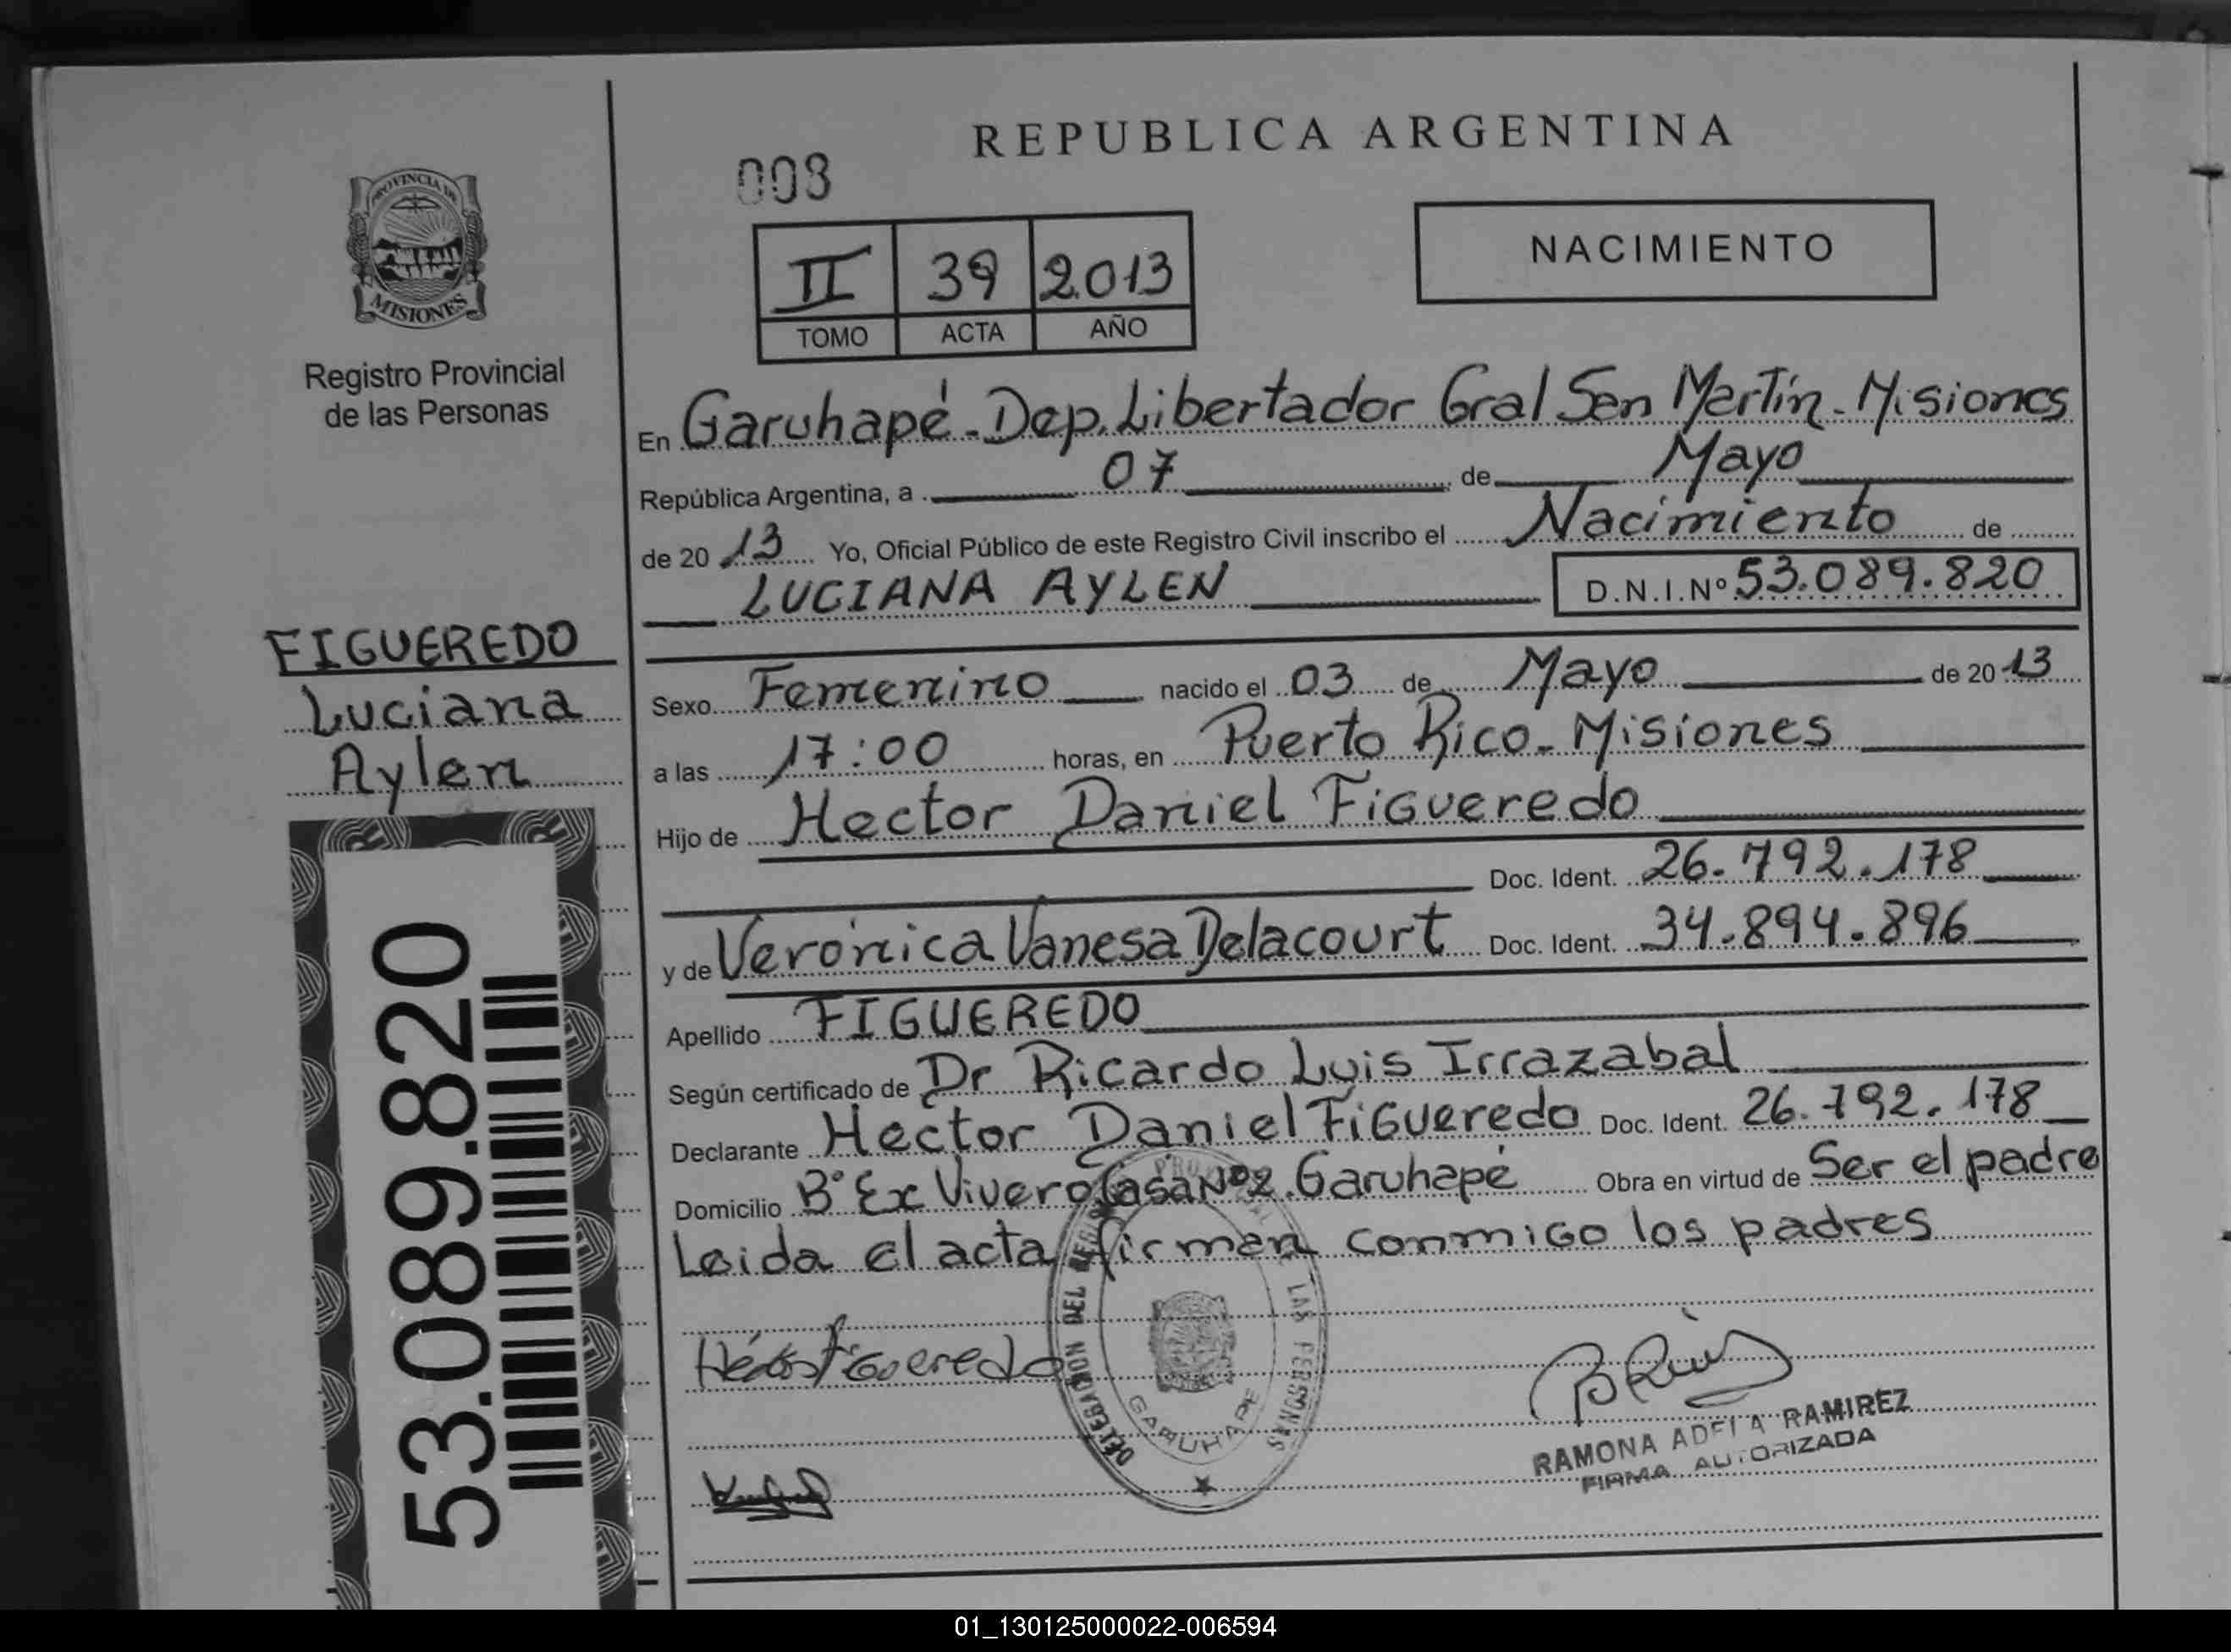 REPUBLICA ARGENTINA
008
PROVINCIA DE
MISIONES
Registro Provincial
de las Personas
II 39 2.013
TOMO ACTA AÑO
NACIMIENTO
En Garuhapé - Dep. Libertador Gral San Martín - Misiones
República Argentina, a 07 de Mayo
de 20 13 Yo, Oficial Público de este Registro Civil inscribo el Nacimiento de
LUCIANA AYLEN D.N.I.Nº 53.089.820
FIGUEREDO
Luciana
Aylen
Sexo Femenino nacido el 03 de Mayo de 20 13
a las 17:00 horas, en Puerto Rico - Misiones
Hijo de Hector Daniel Figueredo
Doc. Ident. 26.792.178
y de Verónica Vanesa Delacourt Doc. Ident. 34.894.896
Apellido FIGUEREDO
Según certificado de Dr Ricardo Luis Irrazabal
Declarante Hector Daniel Figueredo Doc. Ident. 26.792.178
Domicilio Bº Ex Vivero Casa Nº 2. Garuhapé Obra en virtud de Ser el padre
Leida el acta firman conmigo los padres
53.089.820
Figueredo
DELEGACION DEL REGISTRO PROVINCIAL DE LAS PERSONAS
GARUHAPE
RAMONA ADELA RAMIREZ
FIRMA AUTORIZADA
01_130125000022-006594